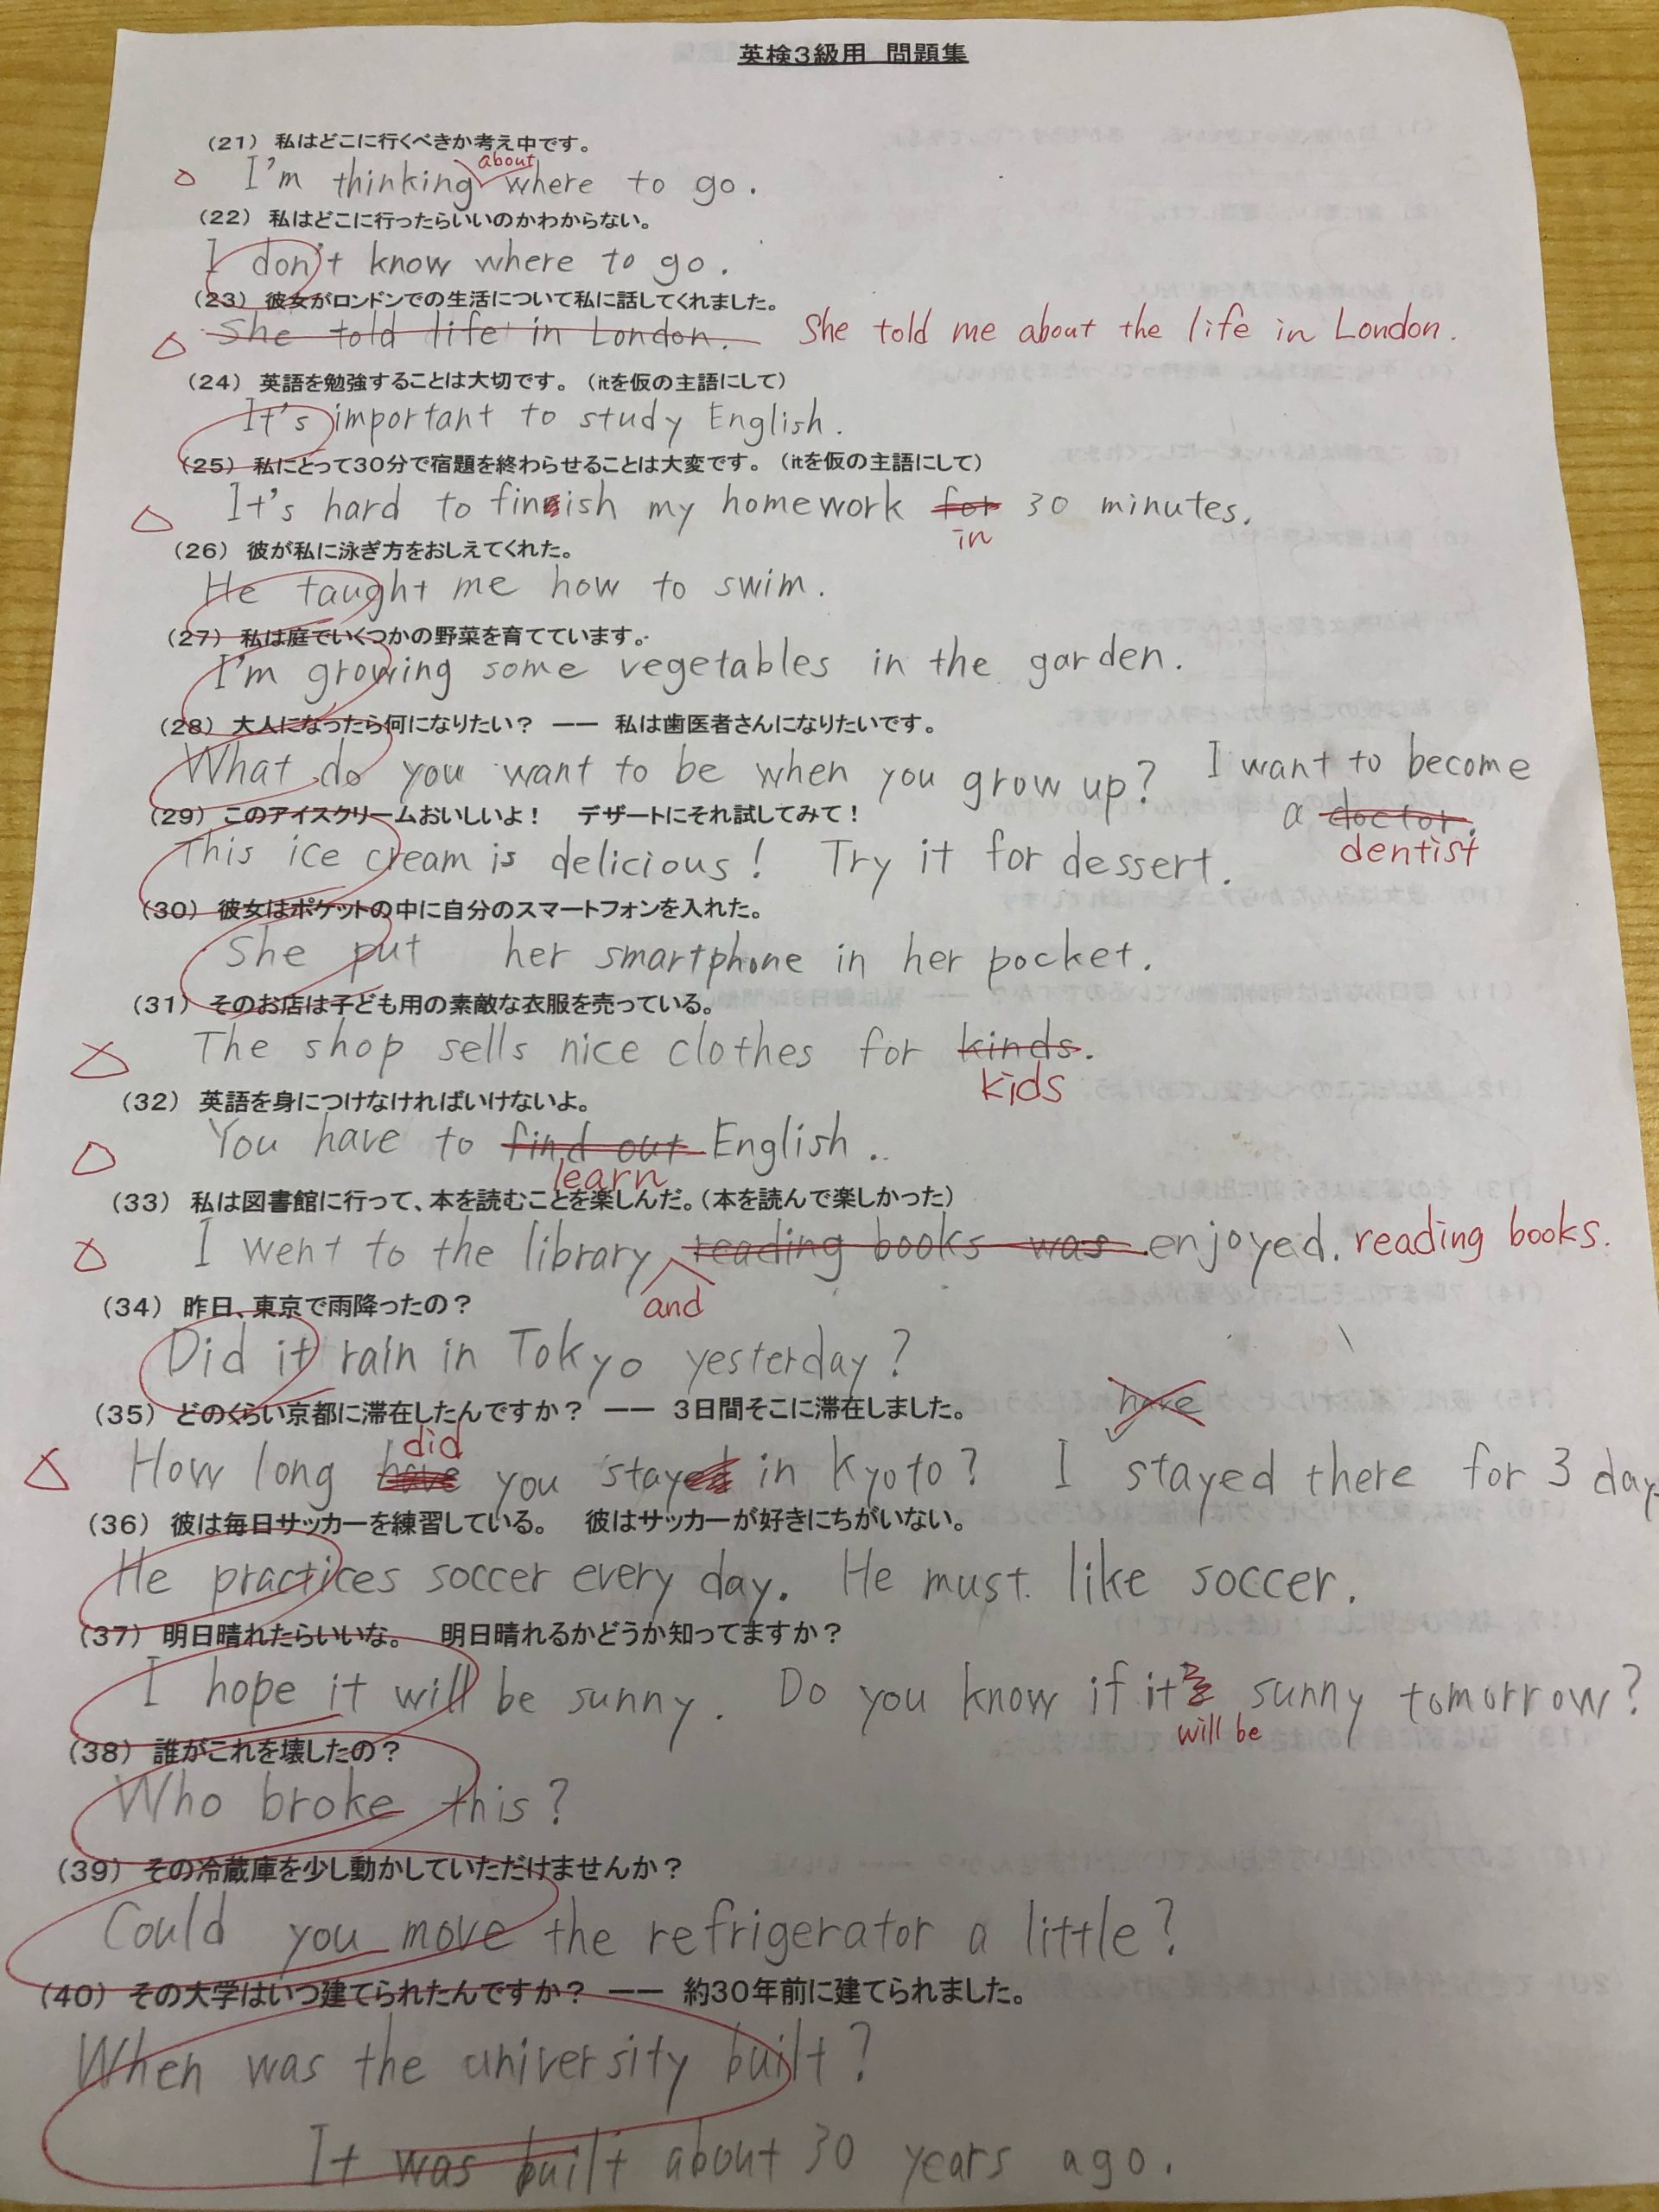 英検3級用 問題集
(21) 私はどこに行くべきか考え中です。
about
I'm thinking where to go.
(22) 私はどこに行ったらいいのかわからない。
I don't know where to go.
(23) 彼女がロンドンでの生活について私に話してくれました。
She told life in London. She told me about the life in London.
(24) 英語を勉強することは大切です。(itを仮の主語にして)
It's important to study English.
(25) 私にとって30分で宿題を終わらせることは大変です。(itを仮の主語にして)
It's hard to finish my homework for 30 minutes.
in
(26) 彼が私に泳ぎ方をおしえてくれた。
He taught me how to swim.
(27) 私は庭でいくつかの野菜を育てています。
I'm growing some vegetables in the garden.
(28) 大人になったら何になりたい? ―― 私は歯医者さんになりたいです。
What do you want to be when you grow up? I want to become
a doctor.
dentist
(29) このアイスクリームおいしいよ! デザートにそれ試してみて!
This ice cream is delicious! Try it for dessert.
(30) 彼女はポケットの中に自分のスマートフォンを入れた。
She put her smartphone in her pocket.
(31) そのお店は子ども用の素敵な衣服を売っている。
The shop sells nice clothes for kinds.
kids
(32) 英語を身につけなければいけないよ。
You have to find out English.
learn
(33) 私は図書館に行って、本を読むことを楽しんだ。(本を読んで楽しかった)
I went to the library reading books was enjoyed. reading books.
and
(34) 昨日、東京で雨降ったの?
Did it rain in Tokyo yesterday?
(35) どのくらい京都に滞在したんですか? ―― 3日間そこに滞在しました。
have
did
How long have you stayed in Kyoto? I stayed there for 3 day
(36) 彼は毎日サッカーを練習している。 彼はサッカーが好きにちがいない。
He practices soccer every day. He must like soccer.
(37) 明日晴れたらいいな。 明日晴れるかどうか知ってますか?
I hope it will be sunny. Do you know if it's sunny tomorrow?
will be
(38) 誰がこれを壊したの?
Who broke this?
(39) その冷蔵庫を少し動かしていただけませんか?
Could you move the refrigerator a little?
(40) その大学はいつ建てられたんですか? ―― 約30年前に建てられました。
When was the university built?
It was built about 30 years ago.